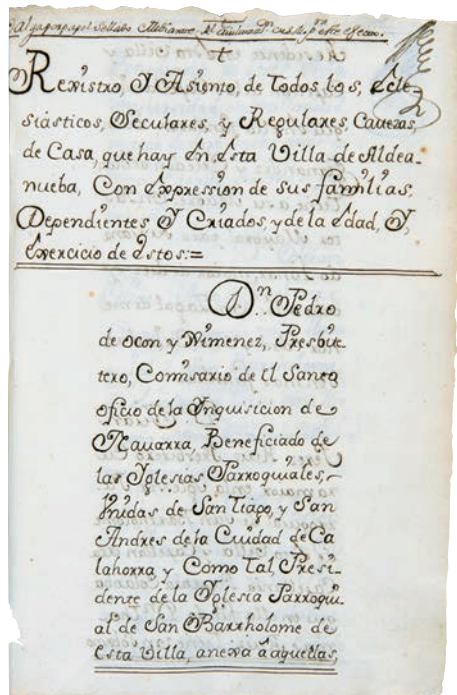 Valga por papel sellado
Rexistro, Y Asiento, de Todos, los, Ecle-
siásticos, Seculares, y Regulares, Cavezas,
de Casa, que hay En, Esta Villa de Aldea-
nueba, Con Expression de sus familias,
Dependientes Y Criados, y de la Edad, Y,
Exercicio de Estos:=
Dn. Pedro
de Ocon y Ximenez, Presbue-
tero, Comisario de El Santo
oficio de la Ynquisicion de
Navarra, Beneficiado de
las Yglesias Parroquiales,
Vnidas de San Tiago, y San
Andres de la Ciudad de Ca
lahorra, y Como Tal, Presi-
dente de la Yglesia Parroqui-
al de San Bartholome de
Esta Villa, anexa â aquellas,